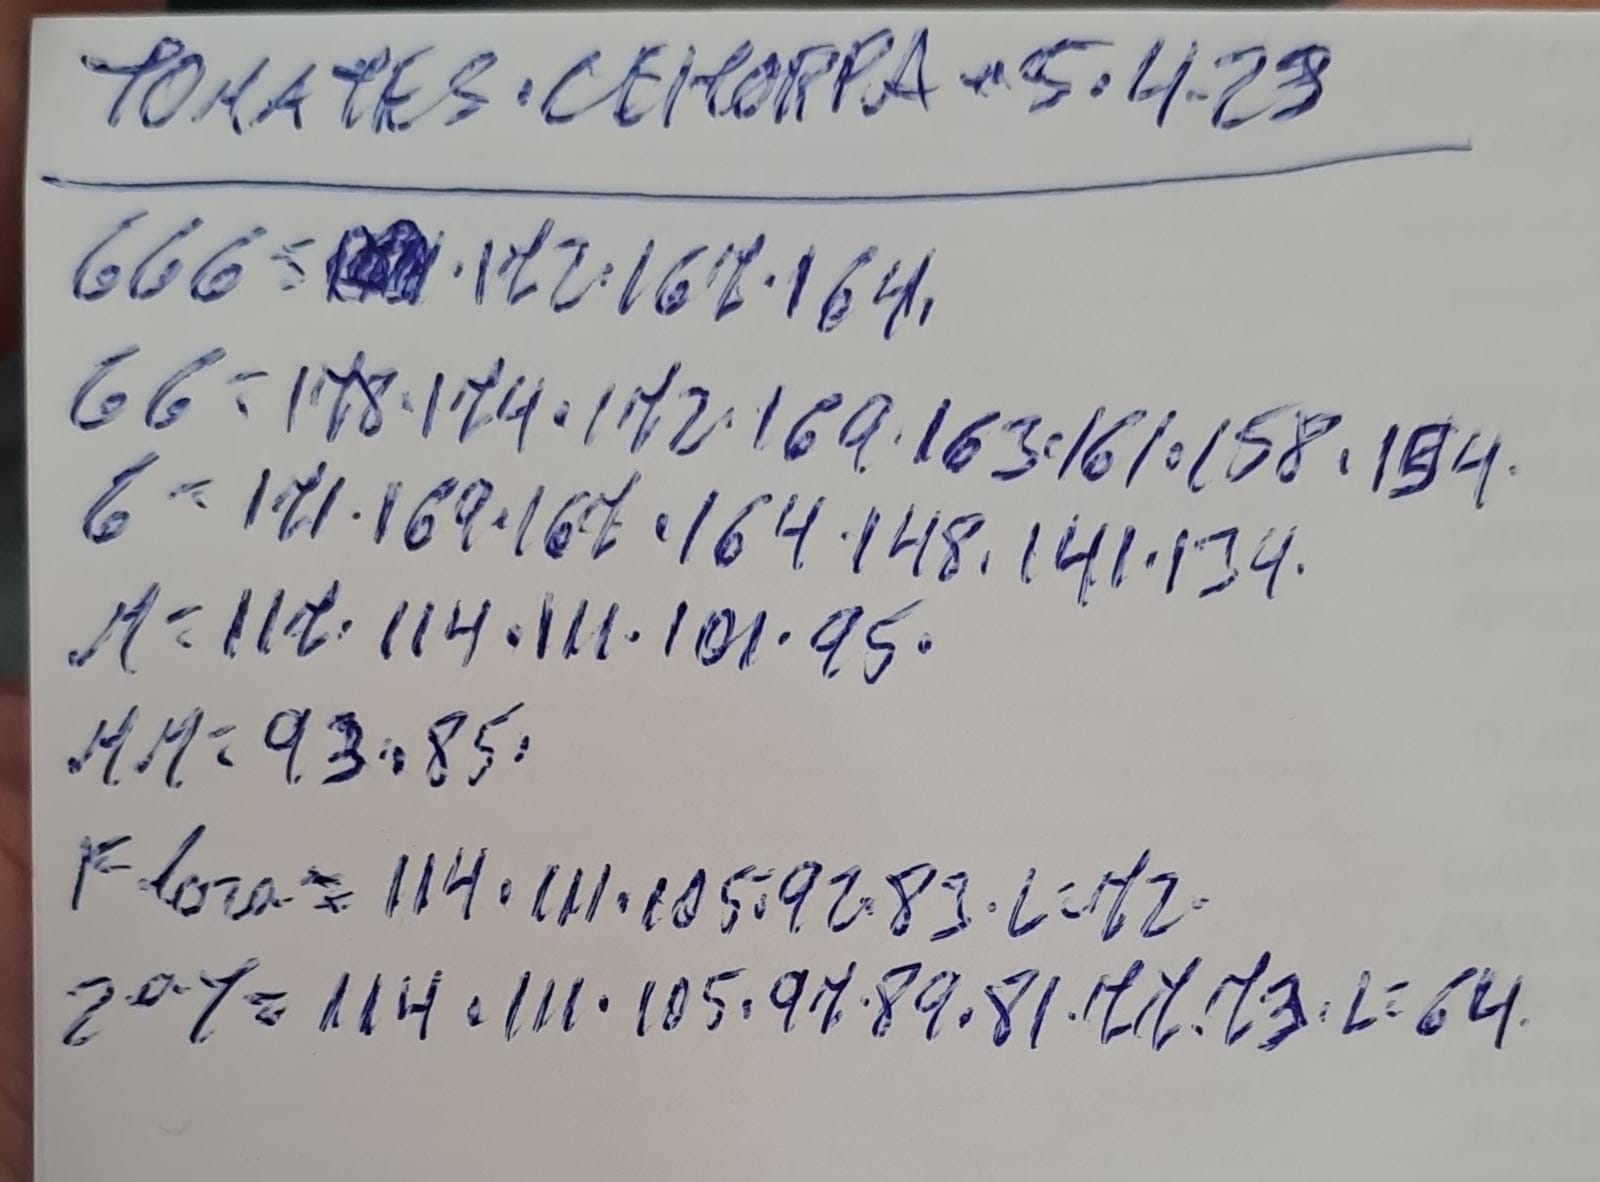 TOMATES. CEHORPA - 5. 4. 23
GGG = . 172. 167. 164.
GG = 178. 174. 172. 169. 163. 161. 158. 154.
G = 171. 169. 167. 164. 148. 141. 134.
M = 117. 114. 111. 101. 95.
MM = 93. 85.
Flora = 114. 111. 105. 92. 83. L = 72.
2ª Y = 114. 111. 105. 97. 89. 81. 77. 73. L = 64.